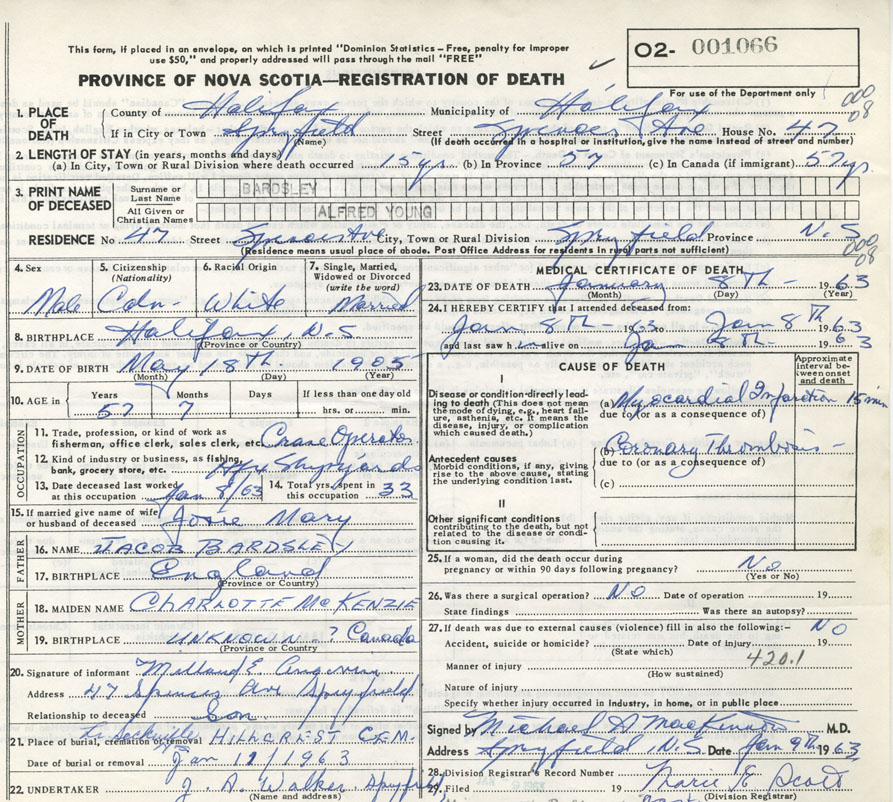 This form, if placed in an envelope, on which is printed "Dominion Statistics – Free, penalty for improper
use $50," and properly addressed will pass through the mail "FREE"
O2- 001066
PROVINCE OF NOVA SCOTIA—REGISTRATION OF DEATH
For use of the Department only
000
08
1. PLACE OF DEATH
County of Halifax Municipality of Halifax
If in City or Town Spryfield Street Spruces Ave House No. 47
(Name) (If death occurred in a hospital or institution, give the name instead of street and number)
2. LENGTH OF STAY (in years, months and days)
(a) In City, Town or Rural Division where death occurred 15 yrs (b) In Province 57 (c) In Canada (if immigrant) 57 yrs.
3. PRINT NAME OF DECEASED
Surname or Last Name BARDSLEY
All Given or Christian Names ALFRED YOUNG
RESIDENCE No 47 Street Spruces Ave City, Town or Rural Division Spryfield Province N.S
(Residence means usual place of abode. Post Office Address for residents in rural parts not sufficient)
000
08
4. Sex Male
5. Citizenship (Nationality) Cdn-
6. Racial Origin White
7. Single, Married, Widowed or Divorced (write the word) Married
8. BIRTHPLACE Halifax, N.S
(Province or Country)
9. DATE OF BIRTH May 18TH. 1905
(Month) (Day) (Year)
10. AGE in Years 57 Months 7 Days If less than one day old hrs. or min.
OCCUPATION
11. Trade, profession, or kind of work as fisherman, office clerk, sales clerk, etc. Crane Operator
12. Kind of industry or business, as fishing, bank, grocery store, etc. Hfx Shipyards
13. Date deceased last worked at this occupation Jan 8/63
14. Total yrs. spent in this occupation 33
15. If married give name of wife or husband of deceased Josie Mary
FATHER
16. NAME JACOB BARDSLEY
17. BIRTHPLACE England
(Province or Country)
MOTHER
18. MAIDEN NAME CHARLOTTE McKENZIE
19. BIRTHPLACE UNKNOWN - ? Canada
(Province or Country)
20. Signature of informant
Address 47 Spruces Ave Spryfield
Relationship to deceased Son
21. Place of burial, cremation or removal HILLCREST CEM.
Date of burial or removal Jan 11/1963
22. UNDERTAKER J. A. Walker, Spryfield
(Name and address)
MEDICAL CERTIFICATE OF DEATH
23. DATE OF DEATH January 8TH – 1963
(Month) (Day) (Year)
24. I HEREBY CERTIFY that I attended deceased from:
Jan 8TH – 1963 to Jan 8TH 1963
and last saw h im alive on Jan 8TH – 1963
CAUSE OF DEATH
Approximate interval between onset and death
I
Disease or condition directly leading to death (This does not mean the mode of dying, e.g., heart failure, asthenia, etc. It means the disease, injury, or complication which caused death.)
(a) Myocardial Infarction 15 min
due to (or as a consequence of)
Antecedent causes
Morbid conditions, if any, giving rise to the above cause, stating the underlying condition last.
(b) Coronary Thrombosis –
due to (or as a consequence of)
(c)
II
Other significant conditions contributing to the death, but not related to the disease or condition causing it.
25. If a woman, did the death occur during pregnancy or within 90 days following pregnancy? No
(Yes or No)
26. Was there a surgical operation? NO Date of operation 19
State findings Was there an autopsy?
27. If death was due to external causes (violence) fill in also the following:– NO
Accident, suicide or homicide? Date of injury 19
(State which)
420.1
Manner of injury
(How sustained)
Nature of injury
Specify whether injury occurred in Industry, in home, or in public place
Signed by Michael A MacKinnon M.D.
Address Spryfield, N.S. Date Jan 9th 1963
28. Division Registrar's Record Number
29. Filed Marie E Scott
(Division Registrar)